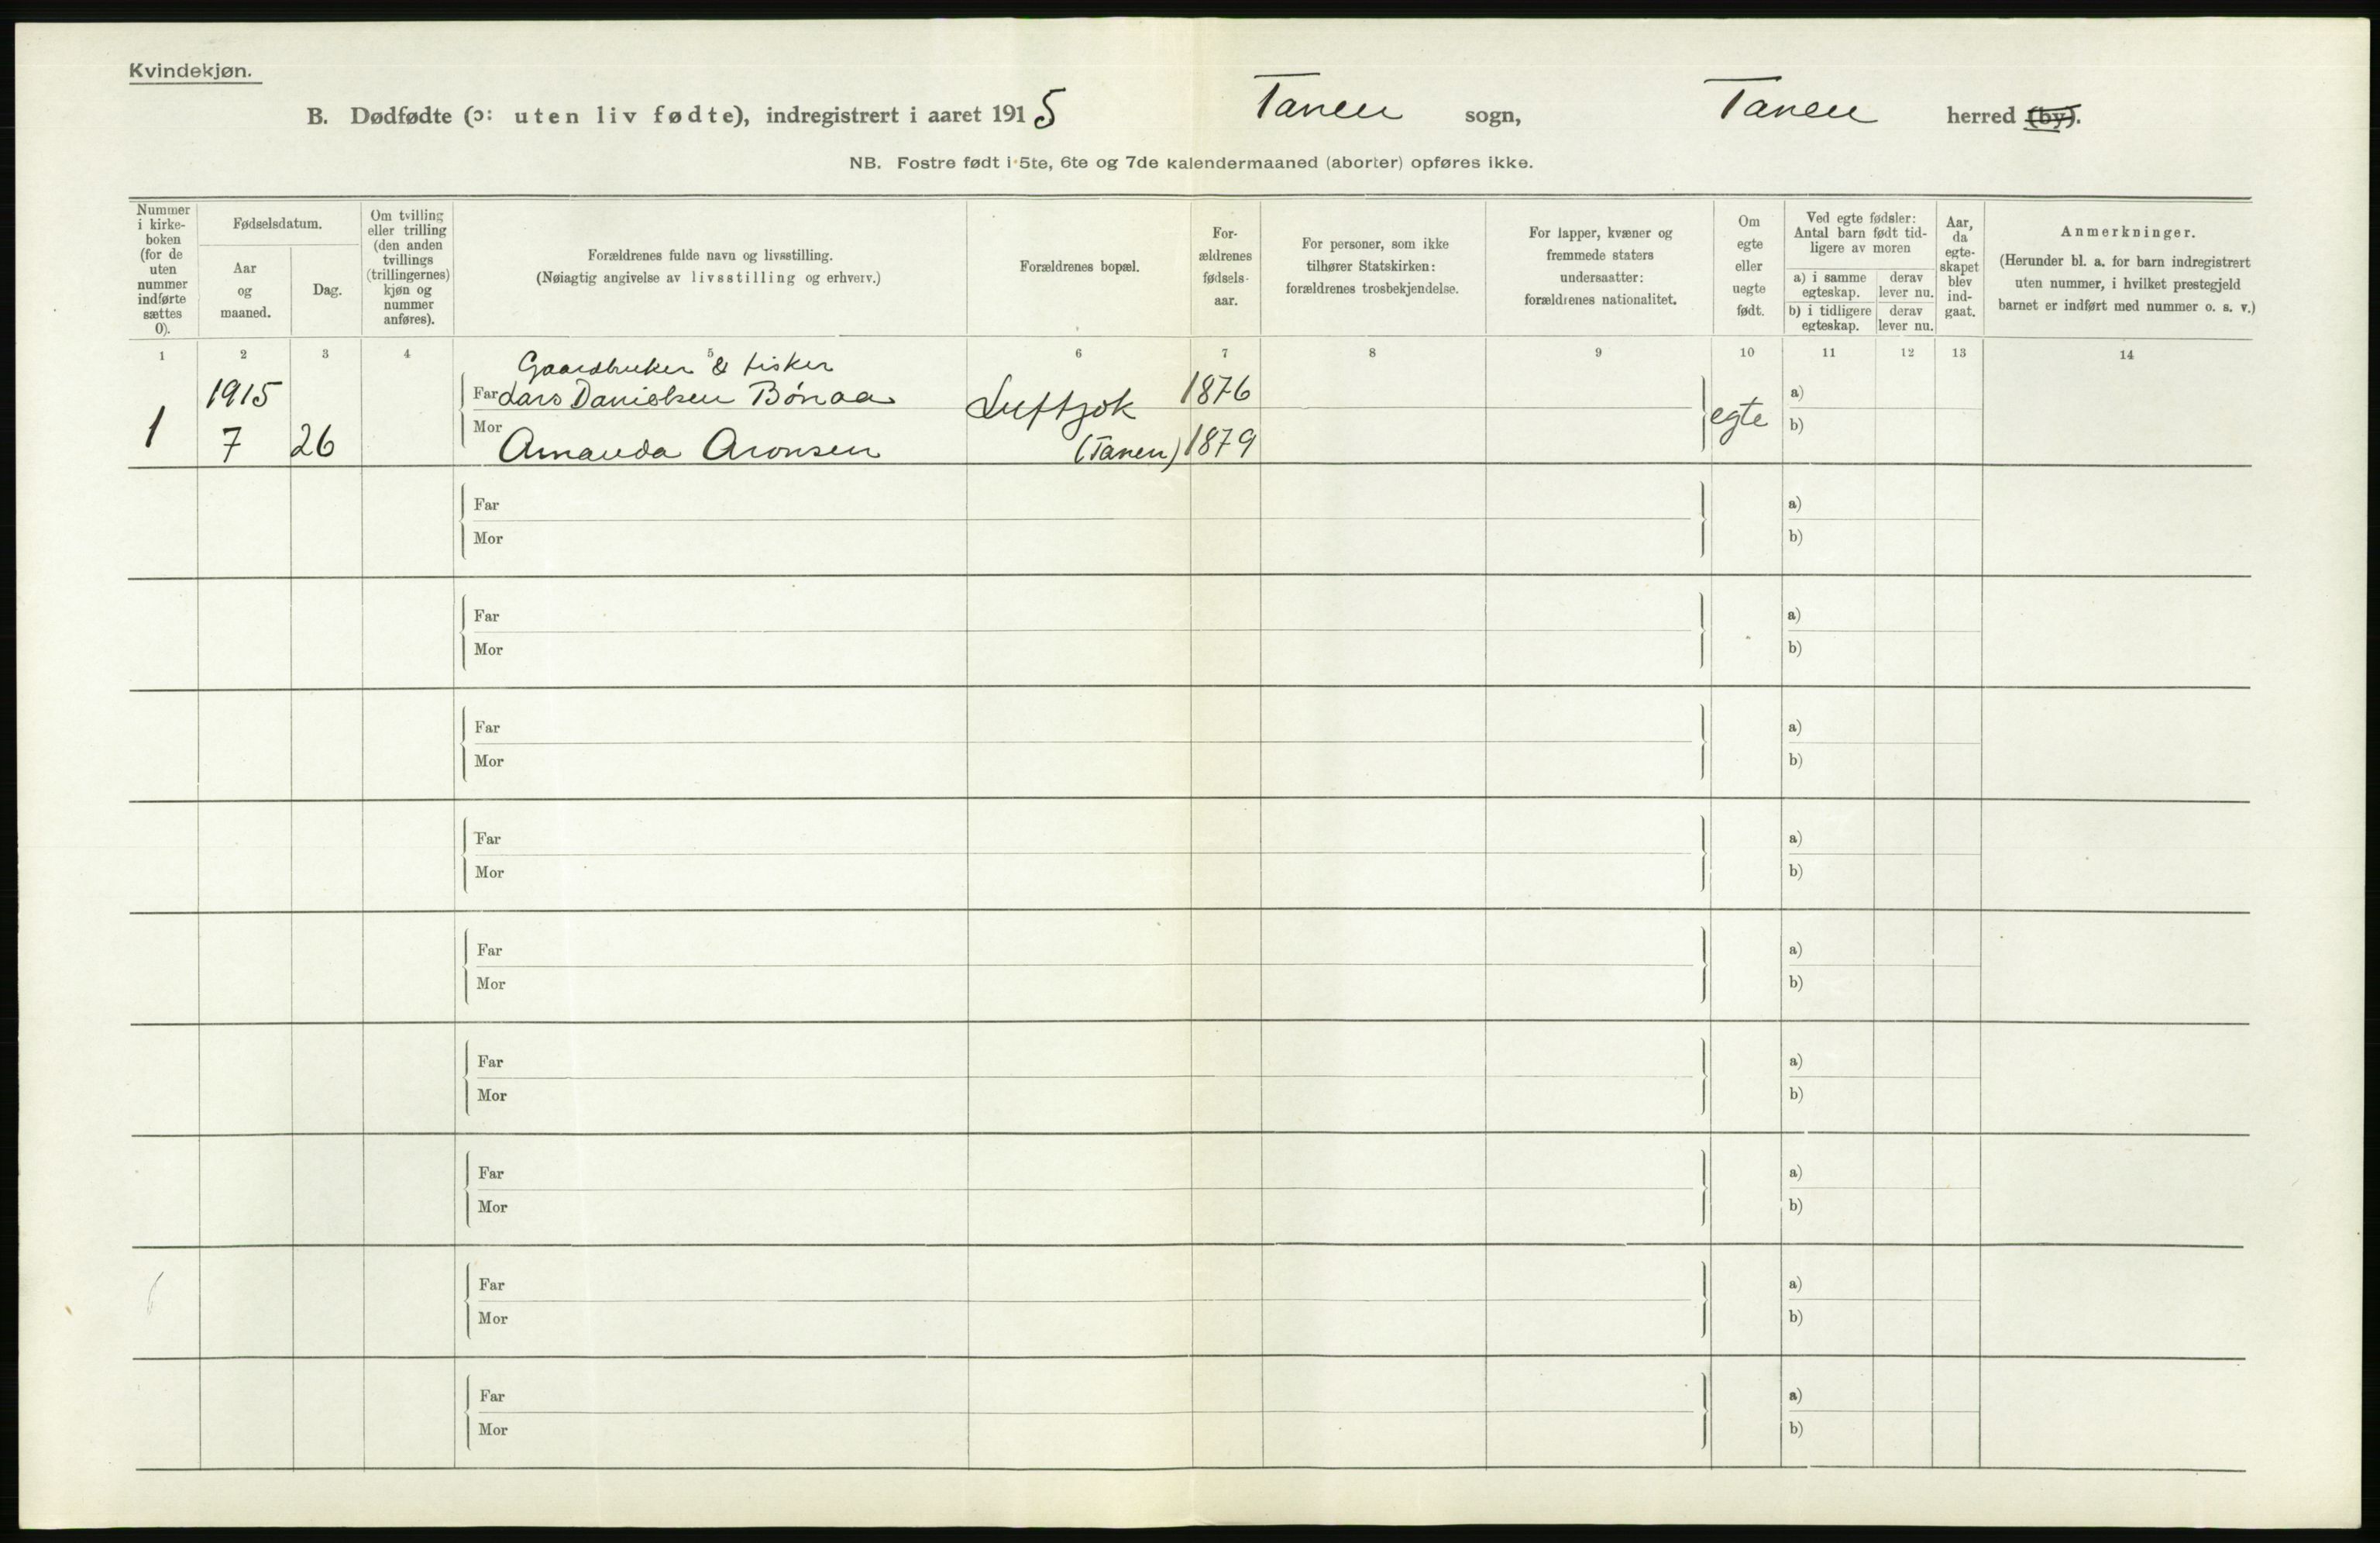 Kvindekjøn.
B. Dødfødte (ɔ: uten liv fødte), indregistrert i aaret 1915 Tanen sogn, Tanen herred (by).
NB. Fostre født i 5te, 6te og 7de kalendermaaned (aborter) opføres ikke.
Nummer
i kirke-
boken
(for de
uten
nummer
indførte
sættes
0).
Fødselsdatum.
Aar
og
maaned.
Dag.
Om tvilling
eller trilling
(den anden
tvillings
(trillingernes)
kjøn og
nummer
anføres).
Forældrenes fulde navn og livsstilling.
(Nøiagtig angivelse av livsstilling og erhverv.)
Forældrenes bopæl.
For-
ældrenes
fødsels-
aar.
For personer, som ikke
tilhører Statskirken:
forældrenes trosbekjendelse.
For lapper, kvæner og
fremmede staters
undersaatter:
forældrenes nationalitet.
Om
egte
eller
uegte
født.
Ved egte fødsler:
Antal barn født tid-
ligere av moren
a) i samme
egteskap.
derav
lever nu.
b) i tidligere
egteskap.
derav
lever nu.
Aar,
da
egte-
skapet
blev
ind-
gaat.
Anmerkninger.
(Herunder bl. a. for barn indregistrert
uten nummer, i hvilket prestegjeld
barnet er indført med nummer o. s. v.)
1 2 3 4 5 6 7 8 9 10 11 12 13 14
Gaardbruker & fisker
1915 Far Lars Danielsen Bønaa Luftjok 1876 egte a)
1 7 26 Mor Amanda Aronsen (Tanen) 1879 b)
Far a)
Mor b)
Far a)
Mor b)
Far a)
Mor b)
Far a)
Mor b)
Far a)
Mor b)
Far a)
Mor b)
Far a)
Mor b)
Far a)
Mor b)
Far a)
Mor b)